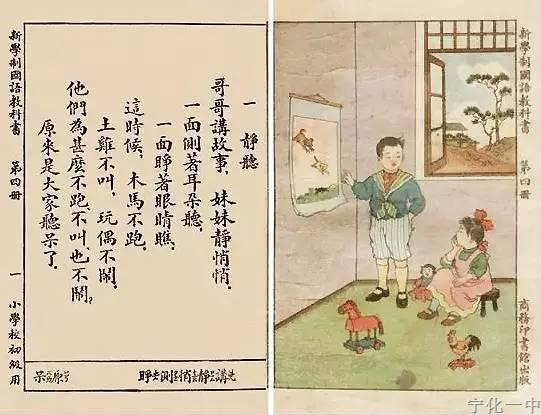 新學制國語教科書 第四冊
商務印書館出版
一 靜聽
哥哥講故事，妹妹靜悄悄，
一面側著耳朵聽，
一面睜著眼睛瞧，
這時候，木馬不跑，
土雞不叫，玩偶不鬧，
他們為甚麼不跑不叫，也不鬧，
原來是大家聽呆了．
講 靜 悄 側 睜
原 呆
新學制國語教科書 第四冊 一 小學校初級用
宁化一中